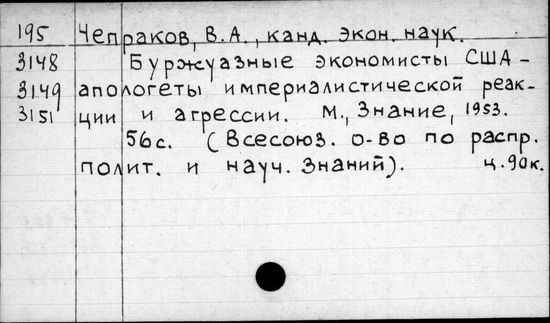 195 Чепраков, В.А., канд. экон. наук.
3148 Буржуазные экономисты США -
3149 апологеты империалистической реак-
3151 ции и агрессии. М., Знание, 1953.
56с. (Всесоюз. о-во по распр.
полит. и науч. Знаний). ц. 90к.